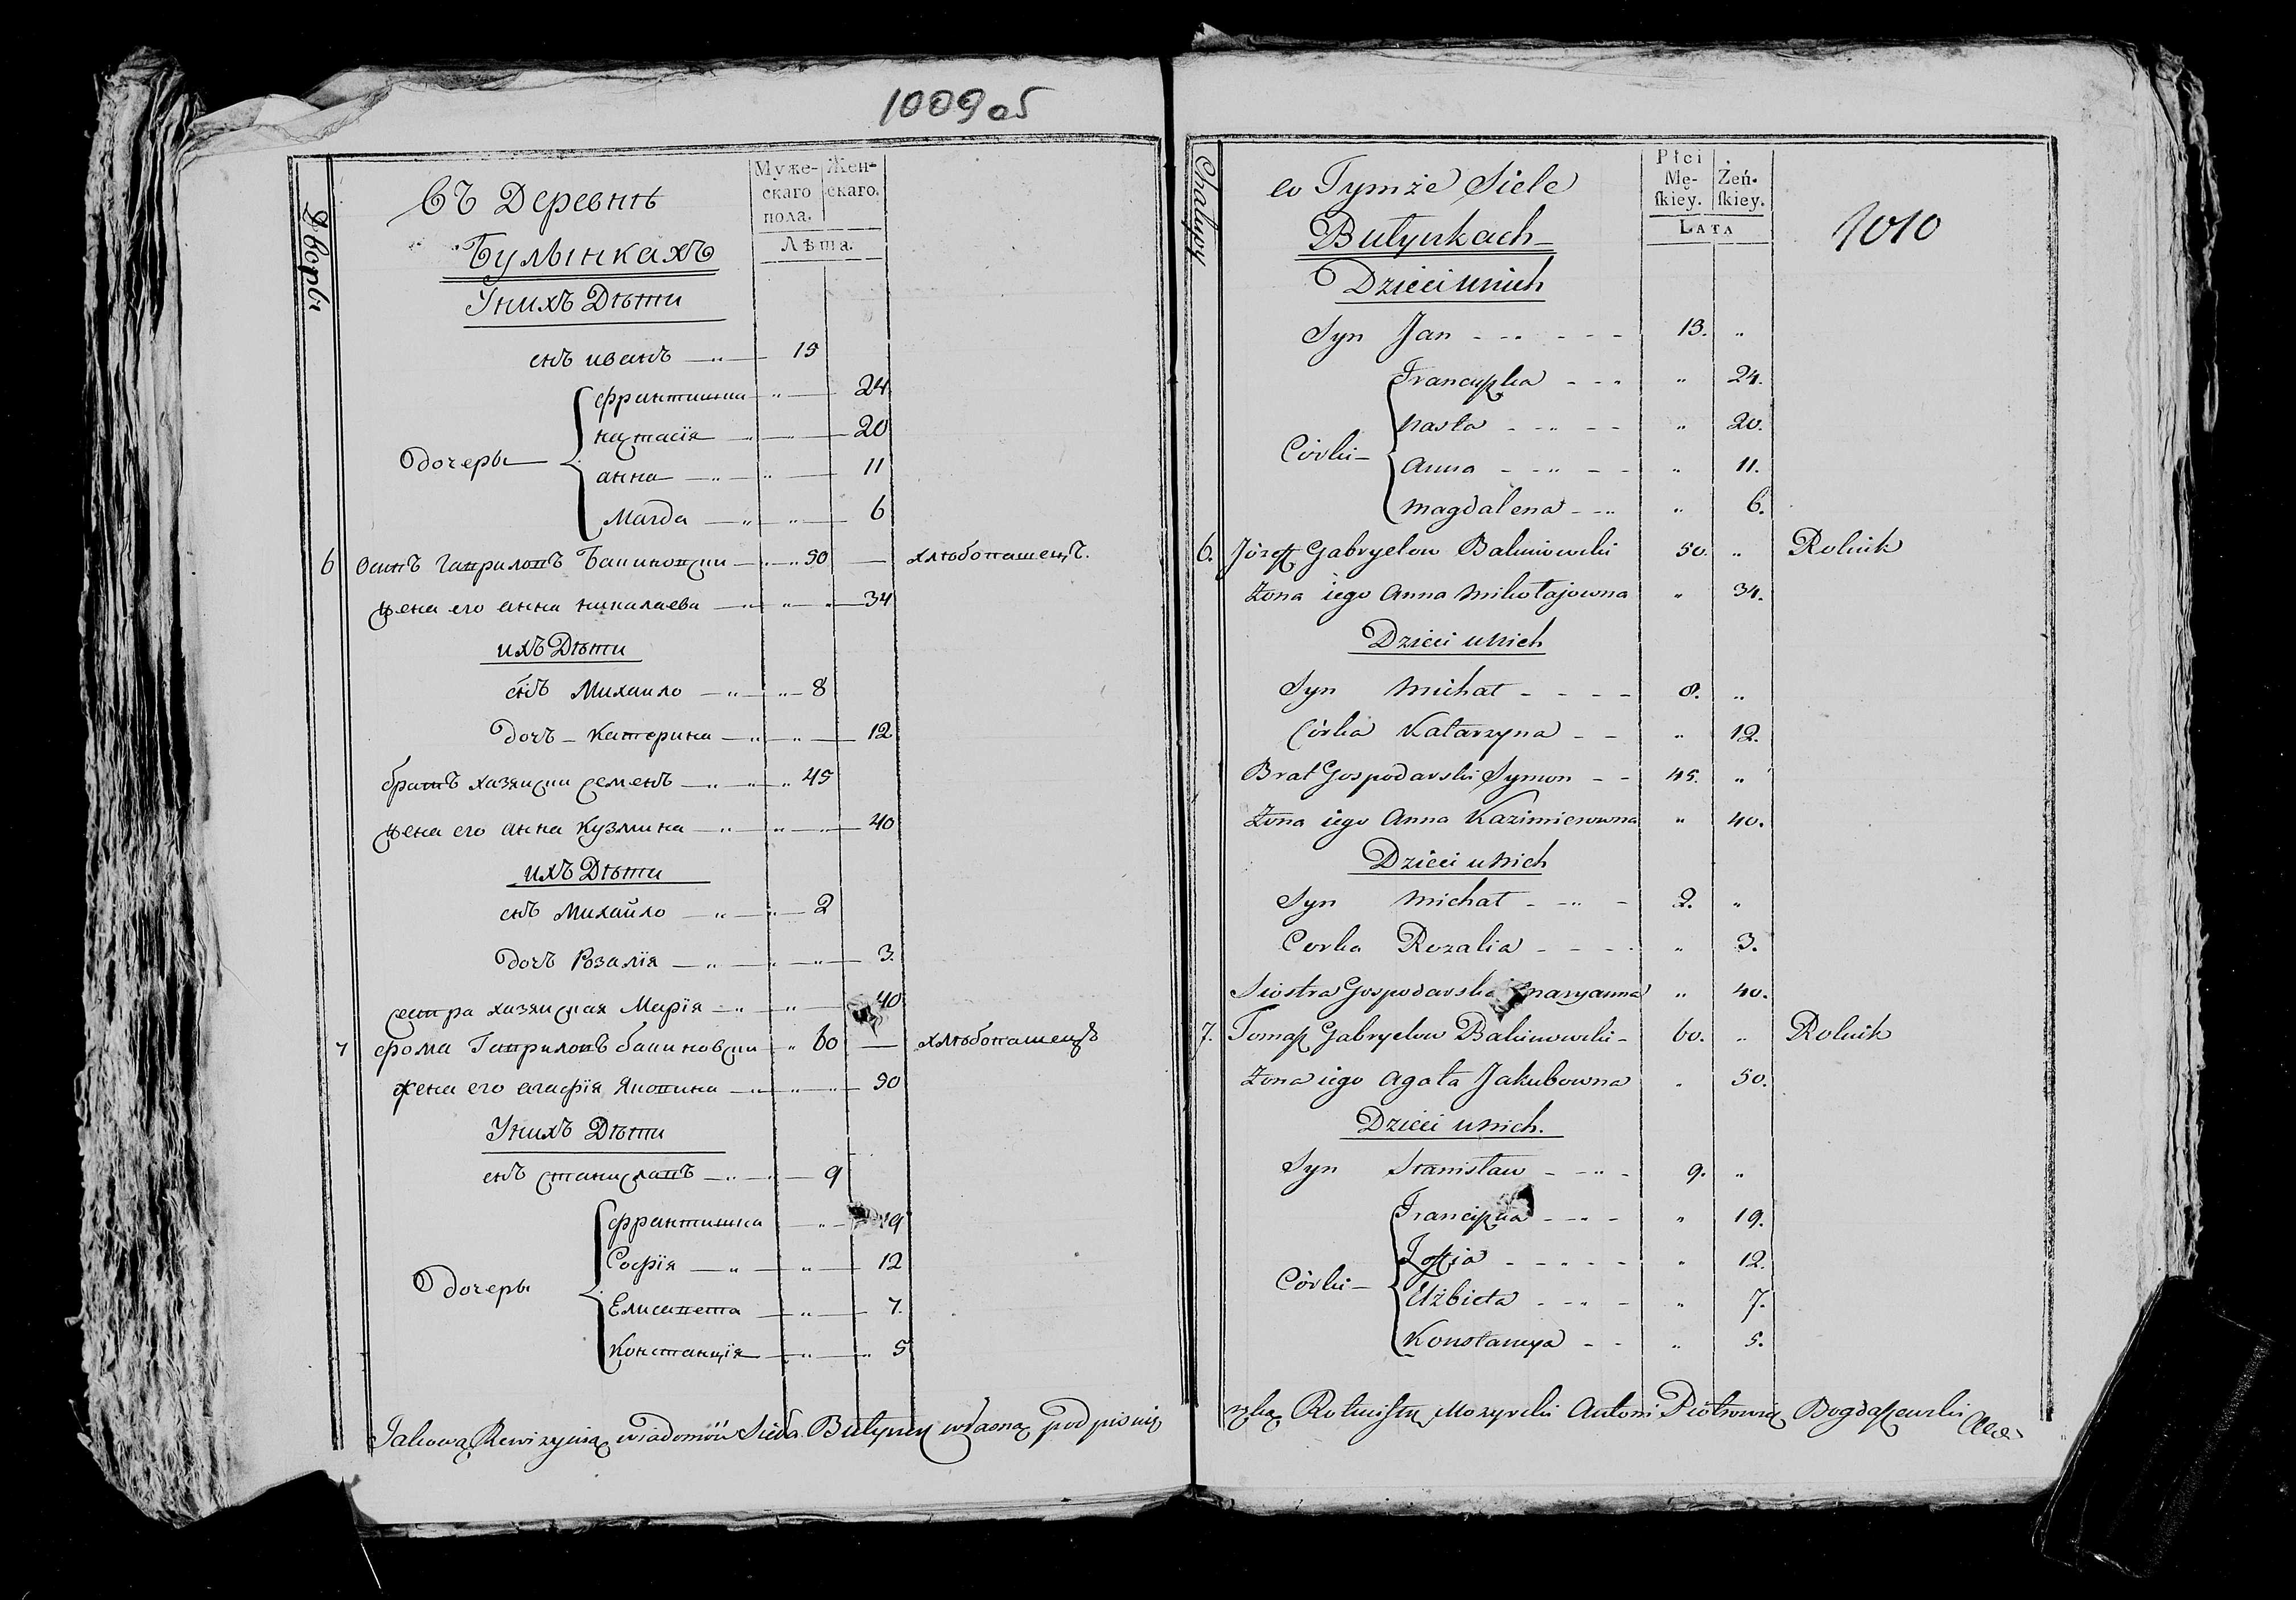 1009 об
Дворы
Въ Деревнѣ
Булынкахъ
Муже-
скаго
пола.
Жен-
скаго.
Лѣта.
У нихъ Дѣти
снъ иванъ 15
Дочеры
франтишка 24
настасія 20
анна 11
Магда 6
6 Осипъ Гавриловъ 50 хлѣбопашецъ.
жена его анна николаева 34
ихъ Дѣти
снъ Михаило 8
Дочь Катерина 12
братъ хазяиски семенъ 45
жена его анна Кузмина 40
ихъ Дѣти
снъ Михайло 2
Дочъ Розалія 3.
сестра хазяиская Марія 40
7 фома Гавриловъ 60 хлѣбопашецъ
жена его агафія Яковина 50
У нихъ Дѣти
снъ станиславъ 9
Дочеры
франтишка 19
Софія 12
Елисавета 7.
Констанція 5
1010
Chałupy
w Tymże Siele
Butynkach
Płci
Mę-
ſkiey.
Żeń-
ſkiey.
LATA
Dzieci u nich
Syn Jan 13. „
Córki
Franciszka „ 24.
Nasta „ 20.
Anna „ 11.
Magdalena „ 6.
6. Józef Gabryelow 50. „ Rolnik
Żona iego Anna Mikołajowna „ 34.
Dzieci u nich
Syn Michał 8. „
Córka Katarzyna „ 12.
Brat Gospodarski Symon 45. „
Żona iego Anna Kazimierowna „ 40.
Dzieci u nich
Syn Michał 2. „
Corka Rozalia „ 3.
Siostra Gospodarska Maryanna „ 40.
7. Tomasz Gabryelow 60. „ Rolnik
Żona iego Agata Jakubowna „ 50.
Dzieci u nich.
Syn Stanisław 9. „
Córki
Franciszka „ 19.
Zofia „ 12.
Elżbieta „ 7.
Konstancya „ 5.
Takową Rewizyiną wiadomość Sioła własną podpisuię
ręką Rotmistrz Mozyrski Antoni Piotrowicz Bogdaszewski